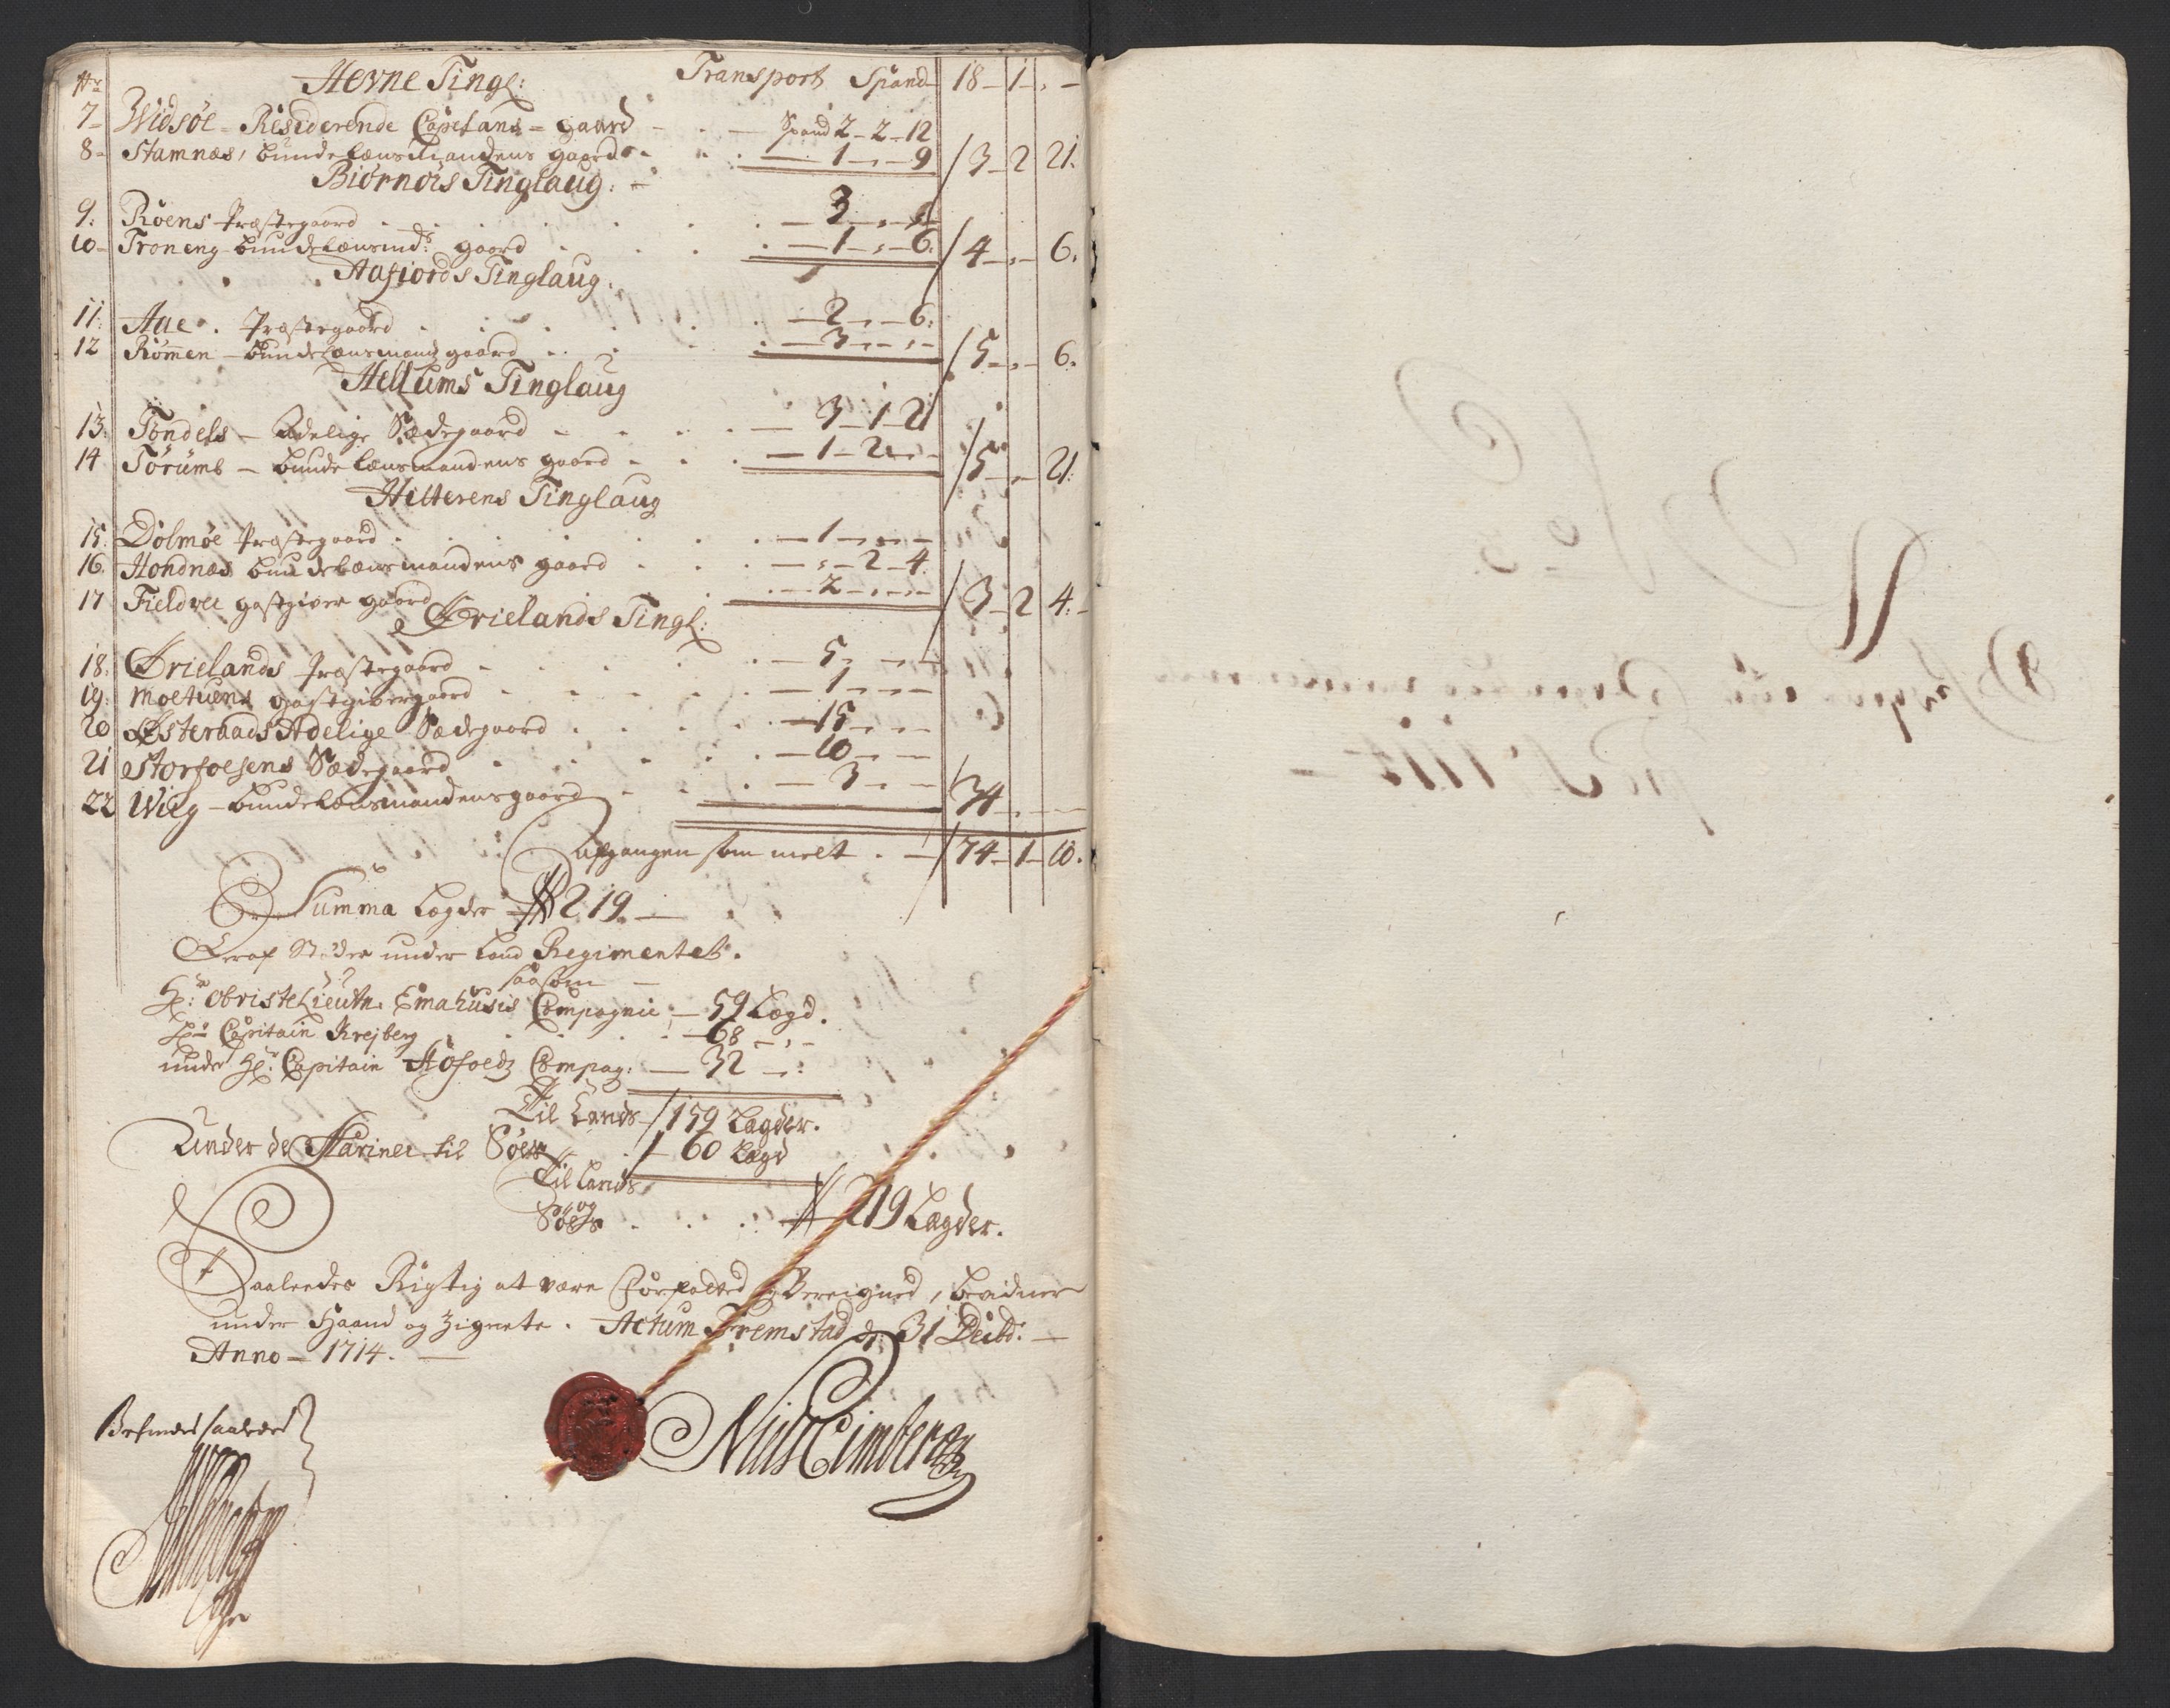 Nr Hevne Tingl: Transport Spand 18 - 1 - , -
7 - Widsøe - Residerende Capelans - gaard - Spand 2 - 2 - 12
8 - Stamnæs, bundelænsmandens gaard - 1 - , - 9 / 3 - 2 21.
Biørnørs Tinglaug: -
9. Røens Præstegaard - 3 - , -
10 - Troneng bundelænsmds gaard - 1 - , - 6. / 4 - , - 6.
Aafiords Tinglaug.
11. Aae. Præstegaard - 2 - , - 6.
12 Rømmen - bundelænsmandz gaard - 3 - , - , - / 5 - , - 6.
Hellums Tinglaug
13. Tøndels - Adelige Sædegaard - 3 - 1 - 21
14 Sørumb - bundelænsmandens gaard - 1 - 2 - , - / 5 - , - 21.
Hitterens Tinglaug
15. Dolmøe Præstegaard - 1 - , - , -
16. Hohdnæs bundelænsmandens gaard - , - 2 - 4.
17 Fieldvee gastgiver gaard - 2 - , - , - / 3 - 2 4. -
Ørielands Tingl:
18. Ørielands Præstegaard - 5 - , - , -
19. Moetuens gastgivergaard - 1 - , - , -
20 Østeraads Adelige Sædegaard - 15 - , - , -
21 Storfosens Sædegaard - 10 - , - , -
22 Wiig - bundelænsmandens gaard - 3 - , - / 34 - , -
Afgangen som melt . - / 74 - 1 - 10.
Summa Lægder 219. -
Heraf Støder under Land Regimentet.
saasom -
Hr: Obriste Lieutn. Emahusis Compagnie - 59 Lægd.
Hr Capitain Krejberg - 68 - , -
under Hr. Capitain Høfoedz Compag: - 32 - , :
Til Lands / 159 Lægder.
Under de Mariner til Søes / - 60 Lægd
Til Lands
og
Søes . . . . 219 Lægder.
Saaledes Rigtig at være forfatted og Beregned, bevidner
under Haand og Zignete. Actum Fremstad d: 31 Decbr. -
Anno - 1714. -
Befindes saaledes
Niels Cimberg